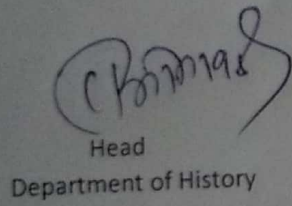 Head
Department of History